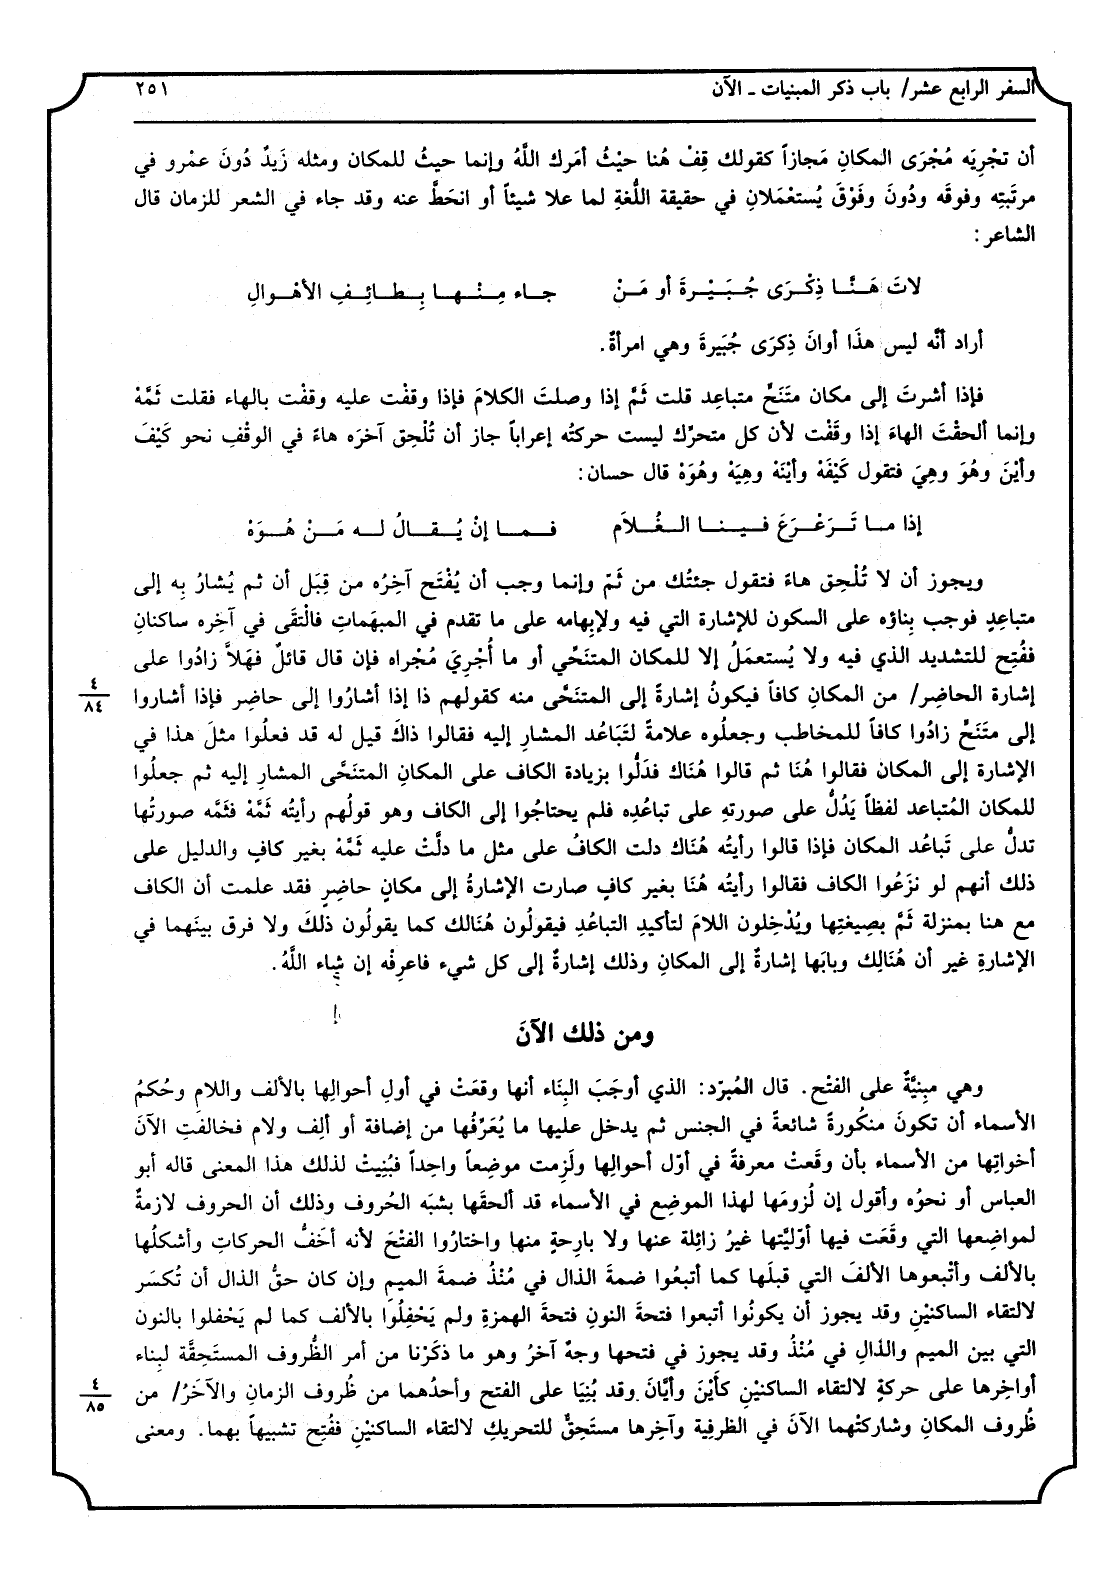 السفر الرابع عشر/ باب ذكر المبنيات ـ الآن
٢٥١
أن تجْرِيَه مُجْرَى المكانِ مَجازاً كقولك قِفْ هُنا حيْثُ أمَرك اللَّهُ وإنما حيثُ للمكان ومثله زَيدٌ دُونَ عمْرو في
مرتَبتِه وفوقَه ودُونَ وفَوْقَ يُستعْمَلانِ في حقيقة اللُّغةِ لما علا شيئاً أو انحَطَّ عنه وقد جاء في الشعر للزمان قال
الشاعر:
لاتَ هَنَّا ذِكْرَى جُبَيْرةَ أو مَنْ جاء مِنْها بِطائِفِ الأهْوالِ
أراد أنَّه ليس هذَا أوانَ ذِكرَى جُبَيرةَ وهي امرأةٌ.
فإذا أشرتَ إلى مكان متَنَحٍّ متباعِد قلت ثَمَّ إذا وصلتَ الكلامَ فإذا وقفْت عليه وقفْت بالهاء فقلت ثَمَّهْ
وإنما ألحقْتَ الهاءَ إذا وقَفْت لأن كل متحرِّك ليست حركتُه إعراباً جاز أن تُلْحِق آخرَه هاءً في الوقْفِ نحو كَيْفَ
وأيْنَ وهُوَ وهِيَ فتقول كَيْفَهْ وأيْنَهْ وهِيَهْ وهُوَهْ قال حسان:
إذا ما تَرَعْرَعَ فينا الغُلاَم فما إنْ يُقالُ له مَنْ هُوَهْ
ويجوز أن لا تُلْحِق هاءً فتقول جئتُك من ثَمّ وإنما وجب أن يُفْتَح آخِرُه من قِبَل أن ثم يُشارُ به إلى
متباعِدٍ فوجب بِناؤه على السكون للإشارة التي فيه ولإبهامه على ما تقدم في المبهَماتِ فالْتقَى في آخِره ساكنانِ
ففُتِح للتشديد الذي فيه ولا يُستعمَلُ إلا للمكان المتنَحِّي أو ما أُجْرِيَ مُجْراه فإن قال قائلٌ فهَلاَّ زادُوا على
إشارة الحاضِر/ من المكانِ كافاً فيكونُ إشارةً إلى المتنَحَّى منه كقولهم ذا إذا أشارُوا إلى حاضِر فإذا أشاروا
٤
٨٤
إلى متَنَحٍّ زادُوا كافاً للمخاطب وجعلُوه علامةً لتَبَاعُد المشارِ إليه فقالوا ذاكَ قيل له قد فعلُوا مثلَ هذا في
الإشارة إلى المكان فقالوا هُنَا ثم قالوا هُنَاك فدَلُّوا بزيادة الكاف على المكانِ المتنَحَّى المشارِ إليه ثم جعلُوا
للمكان المُتباعد لفظاً يَدُلُّ على صورتهِ على تباعُدِه فلم يحتاجُوا إلى الكاف وهو قولُهم رأيتُه ثَمَّهْ فثَمَّه صورتُها
تدلُّ على تَباعُد المكان فإذا قالوا رأيتُه هُنَاك دلت الكافُ على مثل ما دلَّتْ عليه ثَمَّهْ بغير كافٍ والدليل على
ذلك أنهم لو نزَعُوا الكاف فقالوا رأيتُه هُنَا بغير كافٍ صارت الإشارةُ إلى مكانٍ حاضِرٍ فقد علمت أن الكاف
مع هنا بمنزلة ثَمَّ بصِيغتِها ويُدْخِلون اللامَ لتأكيدِ التباعُدِ فيقولُون هُنَالك كما يقولُون ذلكَ ولا فرق بينَهما في
الإشارةِ غير أن هُنَالِك وبابَها إشارةٌ إلى المكانِ وذلك إشارةٌ إلى كل شيء فاعرِفْه إن شاء اللَّهُ.
ومن ذلك الآنَ
وهي مبنِيَّةٌ على الفتْح. قال المُبرّد: الذي أوجَبَ البِنَاء أنها وقعَتْ في أولِ أحوالِها بالألف واللامِ وحُكمُ
الأسماء أن تكونَ منكُورةً شائعةً في الجنس ثم يدخل عليها ما يُعَرِّفُها من إضافة أو ألِف ولام فخالفتِ الآنَ
أخواتِها من الأسماء بأن وقَعتْ معرفةً في أوّل أحوالِها ولَزِمت موضِعاً واحِداً فبُنِيتْ لذلك هذا المعنى قاله أبو
العباس أو نحوُه وأقول إن لُزومَها لهذا الموضِع في الأسماء قد ألحقَها بشبَه الحُروف وذلك أن الحروف لازمةٌ
لمواضِعها التي وقَعَت فيها أوّليَّتها غيرُ زائِلة عنها ولا بارِحةٍ منها واختارُوا الفتْحَ لأنه أخَفُّ الحركاتِ وأشكلُها
بالألف وأتْبعوها الألفَ التي قبلَها كما أتبعُوا ضمةَ الذال في مُنْذُ ضمةَ الميم وإن كان حقُّ الذال أن تُكسَر
لالتقاء الساكنَيْنِ وقد يجوز أن يكونُوا أتبعوا فتحةَ النونِ فتحةَ الهمزةِ ولم يَحْفِلُوا بالألف كما لم يَحْفلوا بالنون
التي بين الميم والذالِ في مُنْذُ وقد يجوز في فتحها وجهٌ آخرُ وهو ما ذكَرْنا من أمر الظُّروف المستَحِقَّة لبِناء
أواخِرها على حركةٍ لالتقاء الساكنَيْنِ كأيْنَ وأيَّانَ وقد بُنِيَا على الفتح وأحدُهما من ظُروف الزمانِ والآخَرُ/ من
٤
٨٥
ظُروف المكانِ وشاركتْهما الآنَ في الظرفِية وآخِرها مستَحِقٌّ للتحريكِ لالتقاء الساكنَيْنِ ففُتِح تشبيهاً بهما. ومعنى